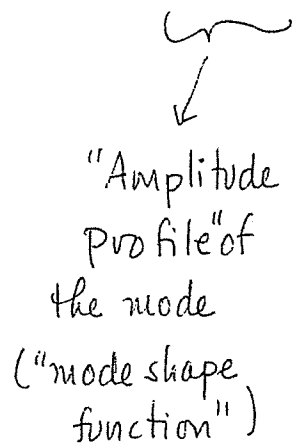 "Amplitude
profile" of
the mode
("mode shape
function")